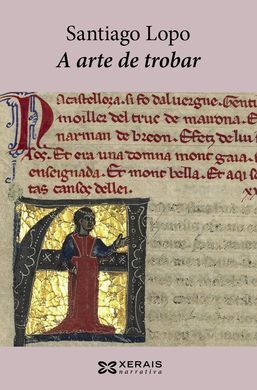 Santiago Lopo
A arte de trobar
Na castelloza. si fo daluergne. Gent
moiller del truc de mairona. E
narman de breon. Efetz de lui
zos. Et era una domna mout gaia.
enseignada. Et mout bella. Et aqi
tas cansos dellei.
XERAIS
narrativa